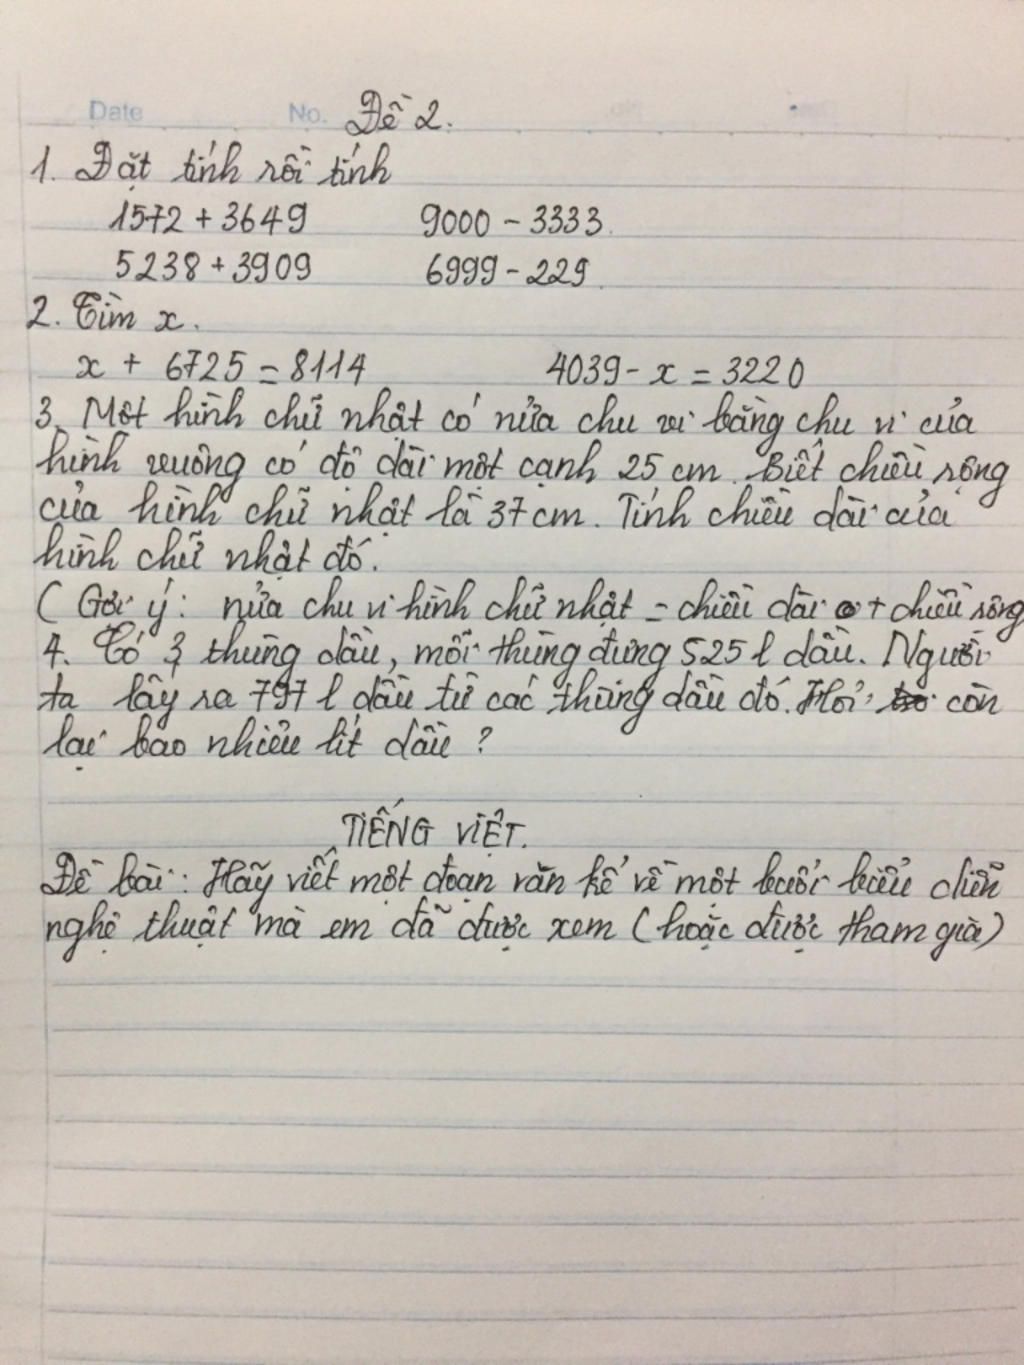 Date No. Đề 2.
1. Đặt tính rồi tính
1572 + 3649 9000 - 3333.
5238 + 3909 6999 - 229.
2. Tìm x.
x + 6725 = 8114 4039 - x = 3220
3. Một hình chữ nhật có nửa chu vi bằng chu vi của
hình vuông có độ dài một cạnh 25 cm. Biết chiều rộng
của hình chữ nhật là 37 cm. Tính chiều dài của
hình chữ nhật đó.
( Gợi ý: nửa chu vi hình chữ nhật = chiều dài + chiều rộng
4. Có 3 thùng dầu, mỗi thùng đựng 525 l dầu. Người
ta lấy ra 797 l dầu từ các thùng dầu đó. Hỏi còn
lại bao nhiêu lít dầu ?
TIẾNG VIỆT.
Đề bài: Hãy viết một đoạn văn kể về một buổi biểu diễn
nghệ thuật mà em đã được xem (hoặc được tham gia)